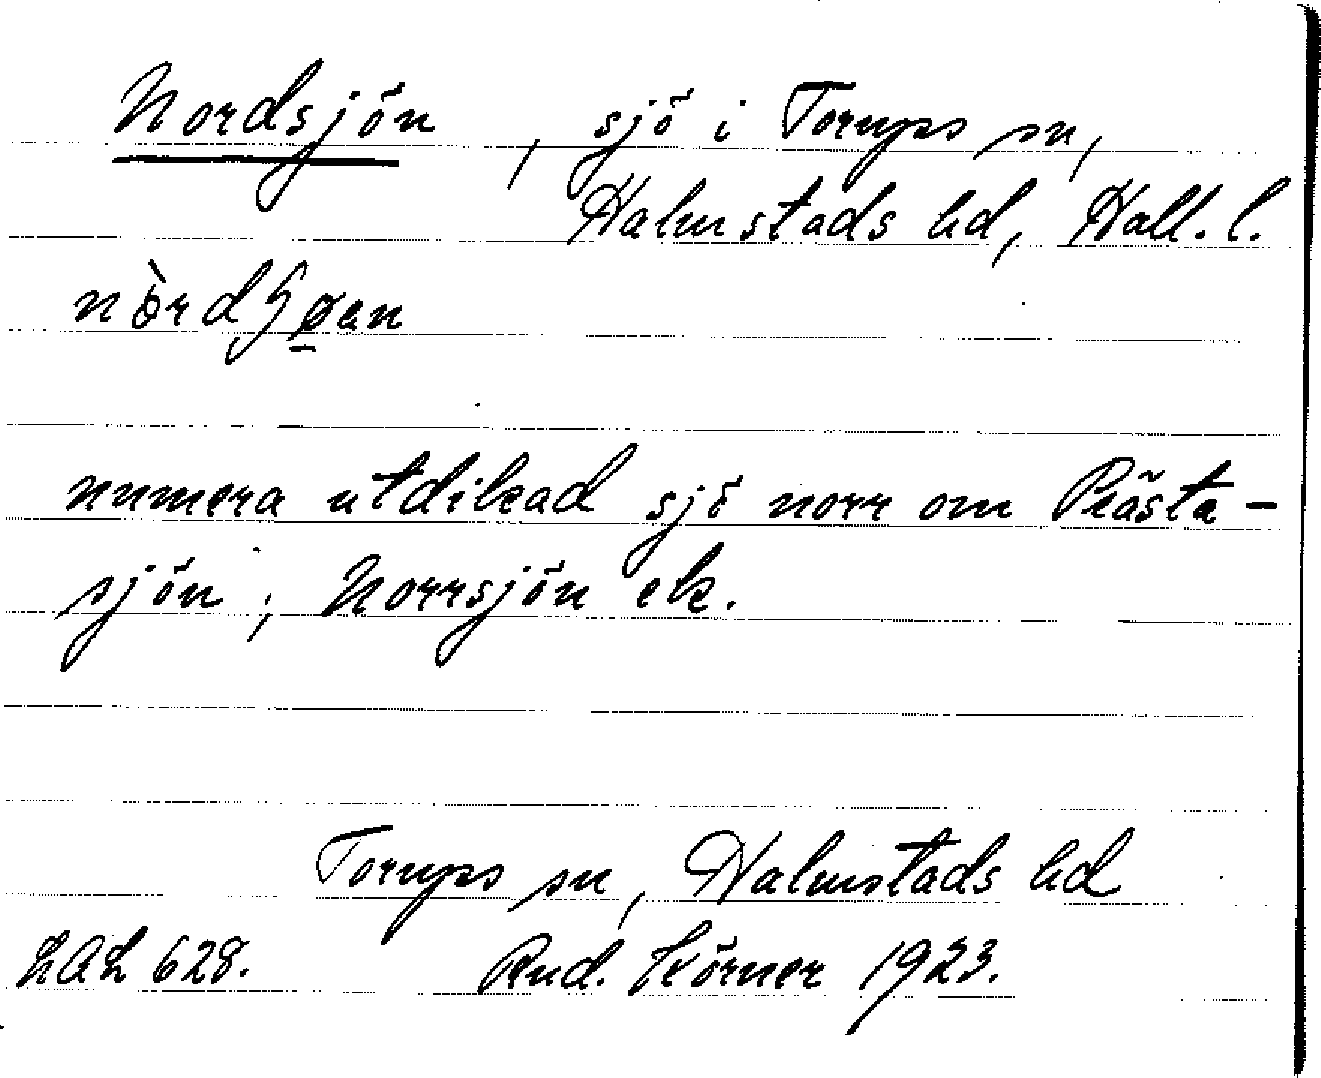 Nordsjön, sjö i Torups sn,
Halmstads hd, Hall. l.
numera utdikad sjö norr om Prästa-
sjön; Norrsjön ek.
Torups sn, Halmstads hd
LAL 628. Rud. Körner 1923.